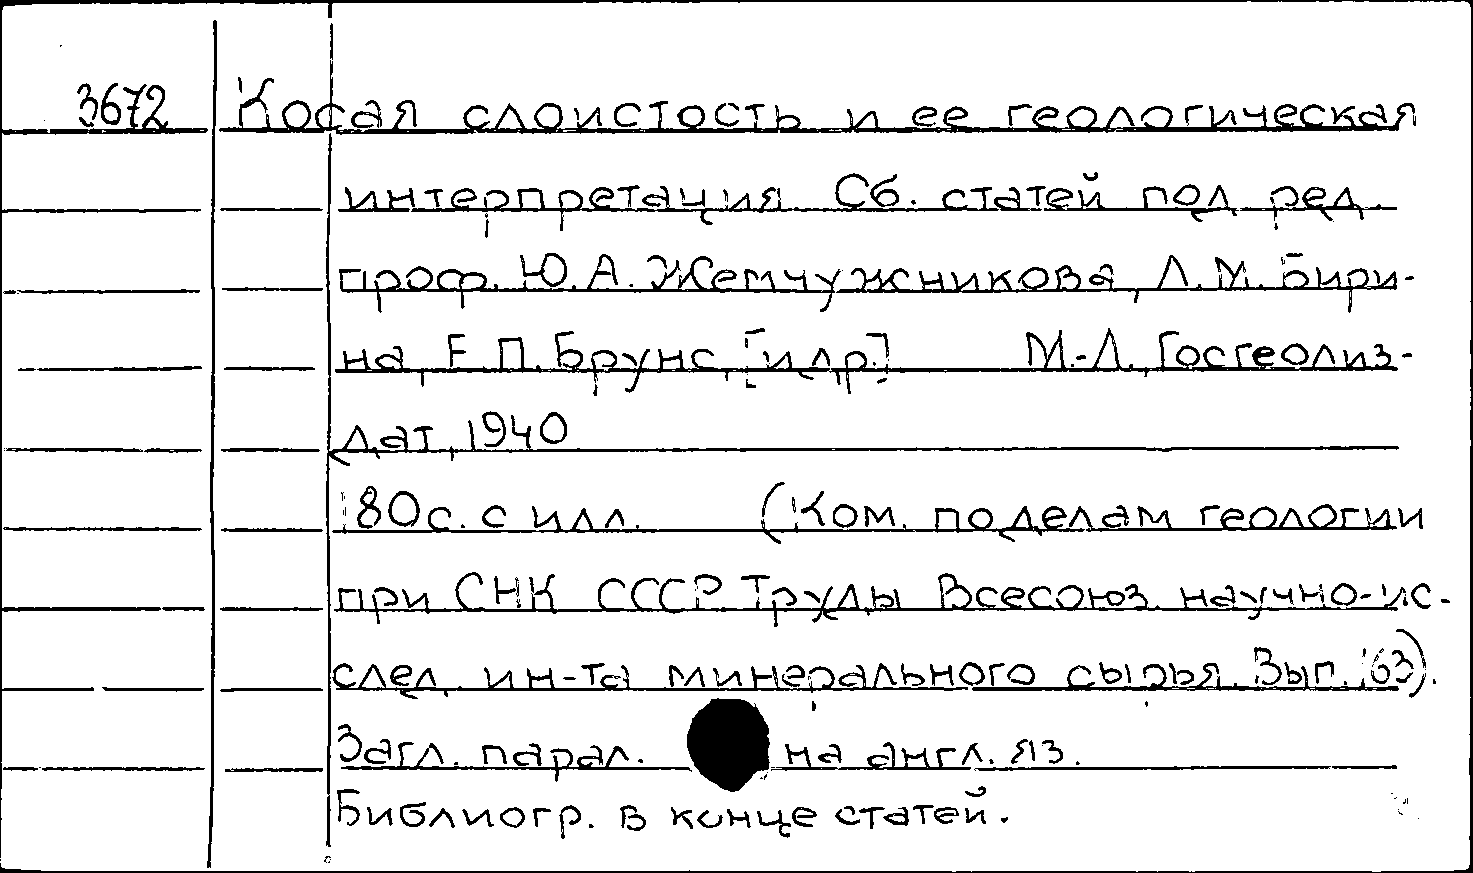 3672 Косая слоистость и ее геологическая
интерпретация. Сб. статей под ред.
проф. Ю.А. Жемчужникова, Л.М. Бири-
на, Е.П. Брунс, [и др.] М.-Л., Госгеолиз-
дат, 1940
180с. с илл. (Ком. по делам геологии
при СНК СССР. Труды Всесоюз. научно-ис-
след. ин-та минерального сырья. Вып. 163).
Загл. парал. на англ. яз.
Библиогр. в конце статей.